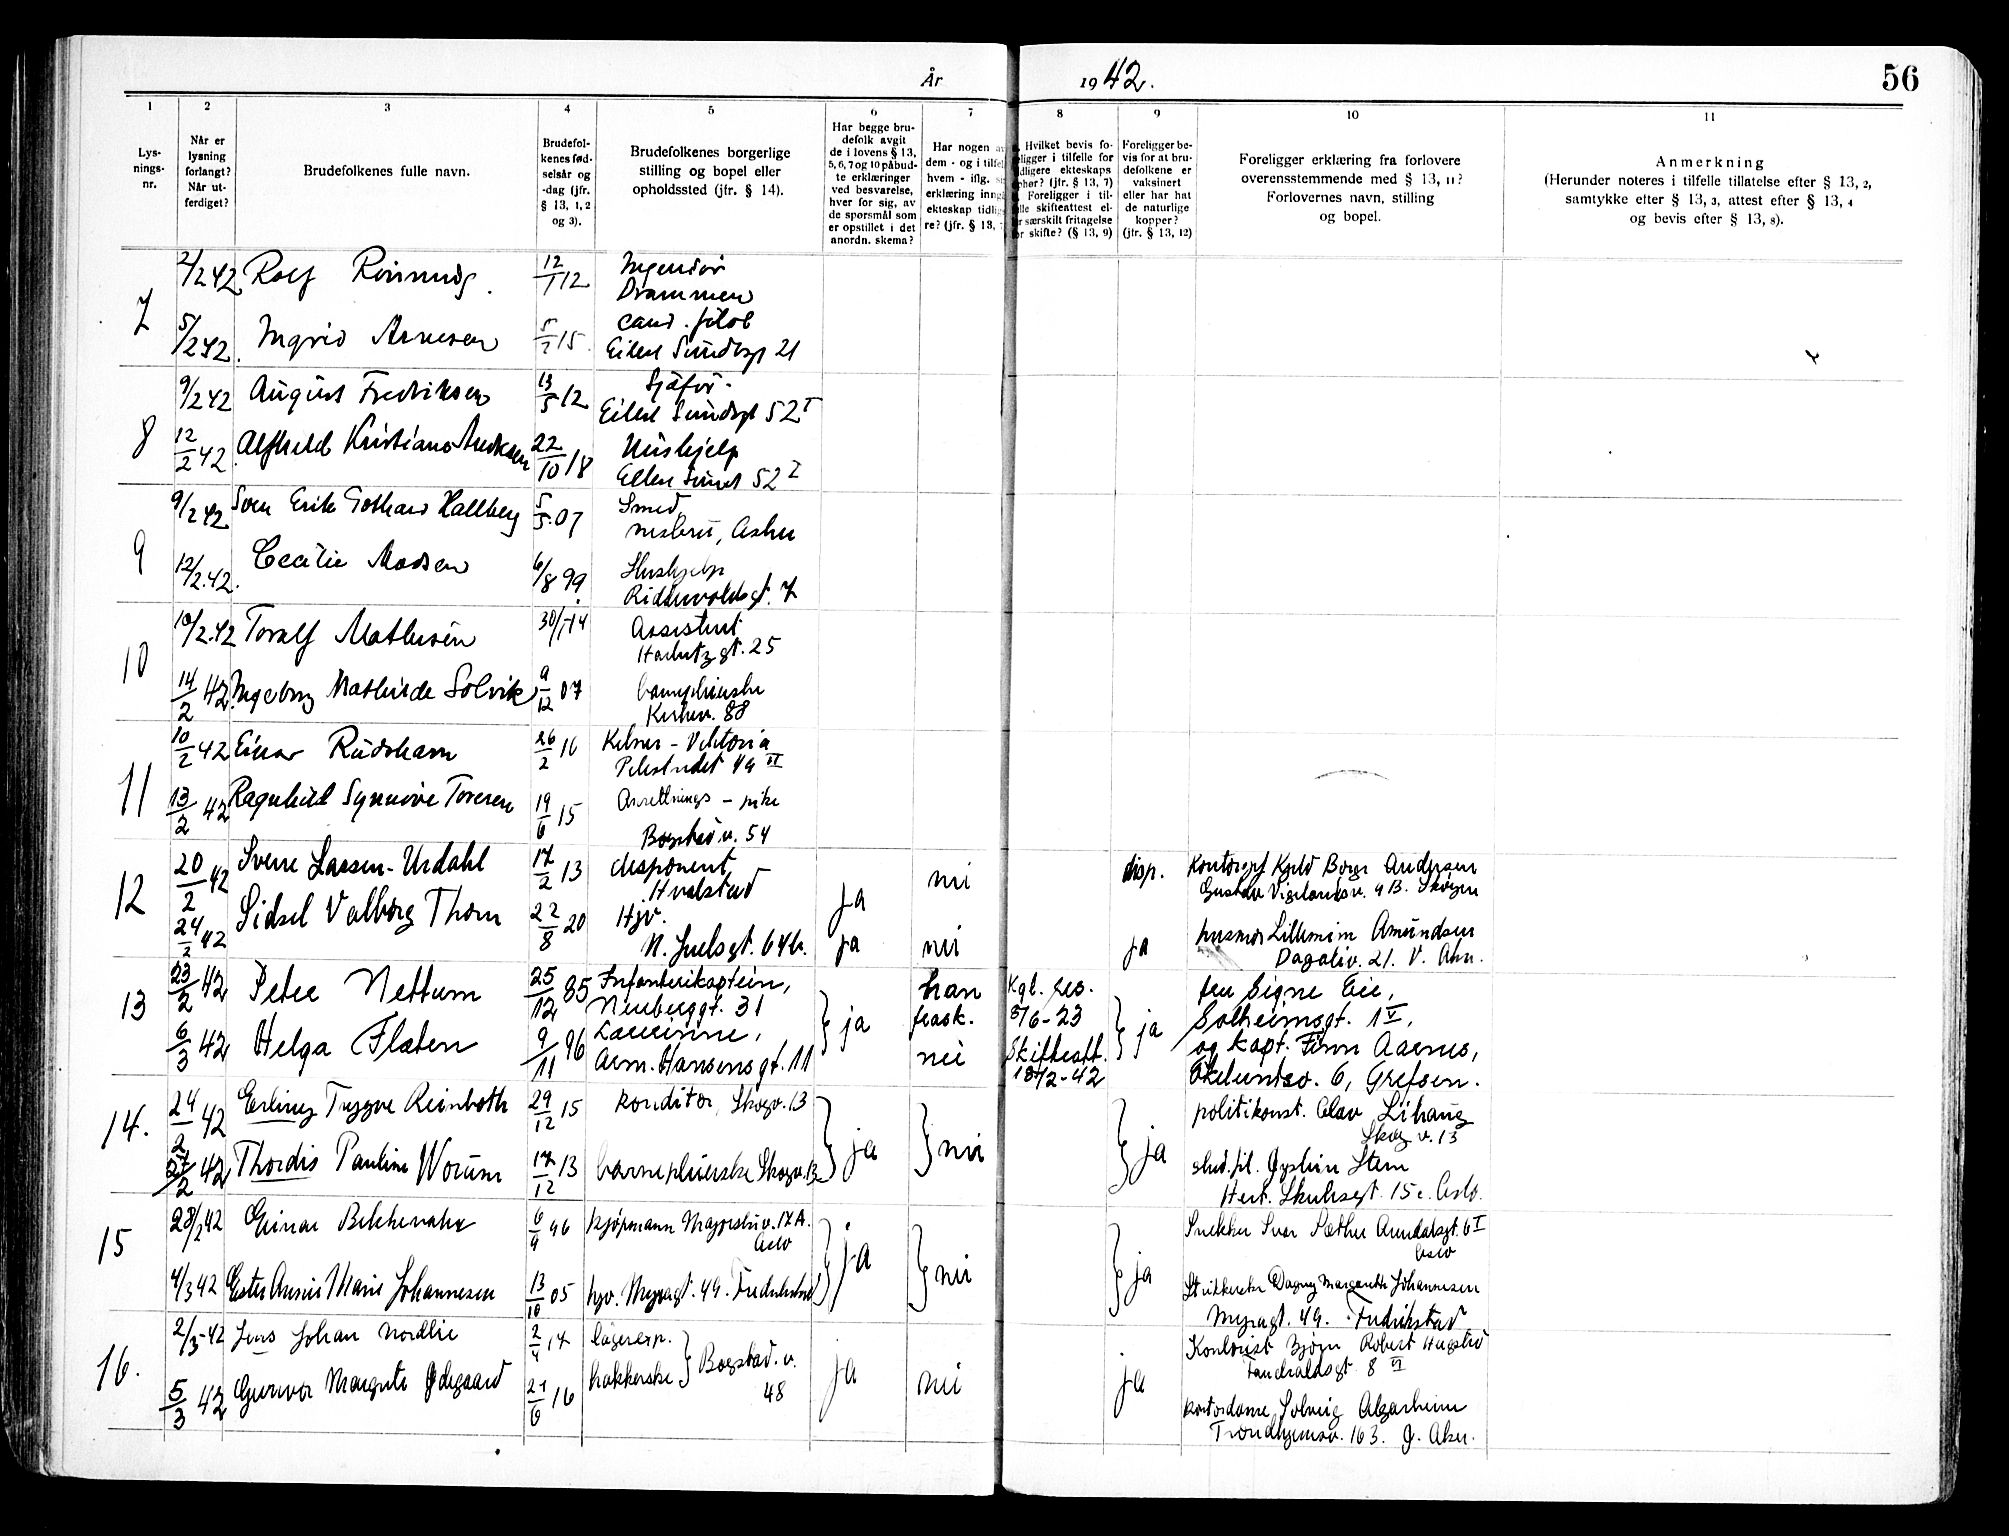 År 1942. 56
1 2 3 4 5 6 7 8 9 10 11
Lysningsnr.
Når er lysning forlangt? Når utferdiget?
Brudefolkenes fulle navn.
Brudefolkenes fødselsår og -dag (jfr. § 13, 1, 2 og 3).
Brudefolkenes borgerlige stilling og bopel eller opholdssted (jfr. § 14).
Har begge brudefolk avgit de i lovens § 13, 5, 6, 7 og 10 påbudte erklæringer ved besvarelse, hver for sig, av de spørsmål som er opstillet i det anordn. skema?
Har nogen av dem - og i tilfelle hvem - iflg.
erklæring inngå
ekteskap tidlig
re? (jfr. § 13,
Hvilket bevis fo-
ligger i tilfelle for
dligere ekteskaps
phør? (jfr. § 13, 7)
Foreligger i til-
elle skifteattest el-
r særskilt fritagelse
or skifte? (§ 13, 9)
Foreligger bevis for at brudefolkene er vaksinert eller har hat de naturlige kopper? (jfr. § 13, 12)
Foreligger erklæring fra forlovere overensstemmende med § 13, 11? Forlovernes navn, stilling og bopel.
Anmerkning
(Herunder noteres i tilfelle tillatelse efter § 13, 2, samtykke efter § 13, 3, attest efter § 13, 4 og bevis efter § 13, 8).
7 2/2 42 Rolf 12/1 12 Ingeniør
Drammen
5/2 42 Ingrid Arnesen 5/2 15 cand. filol
Eilert Sundtsgt 21
8 9/2 42 August Fredriksen 13/5 12 Sjåfør
Eilert Sundtsgt 52 I
12/2 42 Alfhild Kristiane 22/10 18 Hushjelp
Eilert Sundt 52 I
9 9/2 42 Sven Erik Gothard Hallberg 5/5 07 Smed
Nesbru, Asker
12/2.42. Cecilie Madsen 6/8 99 Hushjelp
Riddervoldsgt. 7
10 10/2.42 Toralf Mathisen 30/1 14 Assistent
gt. 25
14/2 42 Ingeborg Mathilde Solvik 9/12 07 barnepleierske
Kirkev. 88
11 10/2 42 Einar Rudshavn 26/2 16 Kelner - Viktoria
Pilestredet 49 VI
13/2 42 Ragnhild Synnøve Toresen 19/6 15 Anretnings - pike
Bogstadv. 54
12 20/2 42 Sverre Larsen-Urdahl 17/2 13 disponent ja nei disp. Kontorsjef Kjeld Borge Andersen
Hvalstad Gustav Vigelandsv. 4B. Skøyen
24/2 42 Sidsel Valborg Thorn 22/8 20 Hjv. ja nei ja husmor Lillemim Amundsen
N. Juelsgt. 64b. Dagaliv. 21. V. Aker.
13 23/2 42 Peter Nettum 25/12 85 Infanterikaptein, ja han Kgl. res. ja fru Signe Eie,
Neuberggt. 31 frask. 8/6-23 Solheimsgt. 1 V,
6/3 42 Helga Flaten 9/11 96 Lærerinne, nei Skifteatt. og kapt. Finn Aarnes,
Arm. Hansensgt. 11 18/2-42 6, Grefsen.
14. 24/2 42 Erling Tryggve Reinboth 29/12 15 konditor, Skogv. 13 ja nei ja politikonst. Olav Lihaug
Skog v. 13
27/2 42 Thordis Pauline Worum 17/12 13 barnepleierske Skogv. 13 stud. fil. Øystein Steen
Skulesgt. 15c. Oslo.
15 28/2 42 Einar 6/9 96 kjøpmann 17A. ja nei ja Snekker Ivar Sæther Arendalsgt. 6 I
Oslo Oslo
4/3 42 Ester Marie Johannesen 13/10 05 hjv. Myragt. 49. Fredrikstad Dagny Margrethe Johannesen
Myragt. 49. Fredrikstad
16. 2/3-42 Jens Johan Nordlie 2/4 17 lagerexp. Bogstad. v. ja nei ja Bjørn Robert
8 VI
5/3 42 Gunvor Margrete Ødegaard 21/6 16 48 kontordame Solveig Algarheim
Trondhjemsv. 163. Ø. Aker.